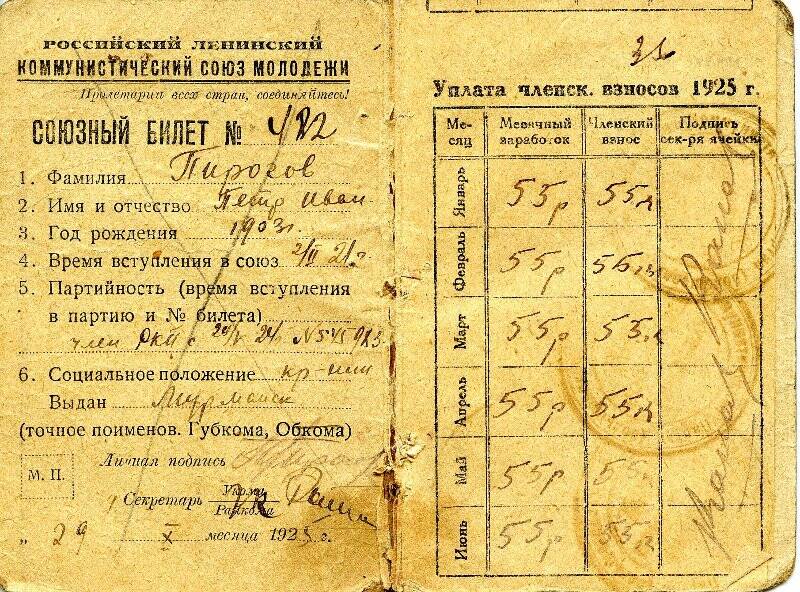 РОССИЙСКИЙ ЛЕНИНСКИЙ
КОММУНИСТИЧЕСКИЙ СОЮЗ МОЛОДЕЖИ
Пролетарии всех стран, соединяйтесь!
СОЮЗНЫЙ БИЛЕТ №
1. Фамилия Пирогов
2. Имя и отчество Петр Иван
3. Год рождения 1903г.
4. Время вступления в союз 2/II 21г.
5. Партийность (время вступления
в партию и № билета)
член РКП с
6. Социальное положение кр-нин
Выдан Мурманск
(точное поименов. Губкома, Обкома)
Личная подпись
М. П.
Секретарь Укома
Райкома
„ 29 X месяца 1925 г.
Уплата членск. взносов 1925 г.
Месяц Месячный заработок Членский взнос Подпись сек-ря ячейки
Январь 55р 55к
Февраль 55р 55к
Март 55р 55к
Апрель 55р 55к
Май 55р 55к
Июнь 55р 55к